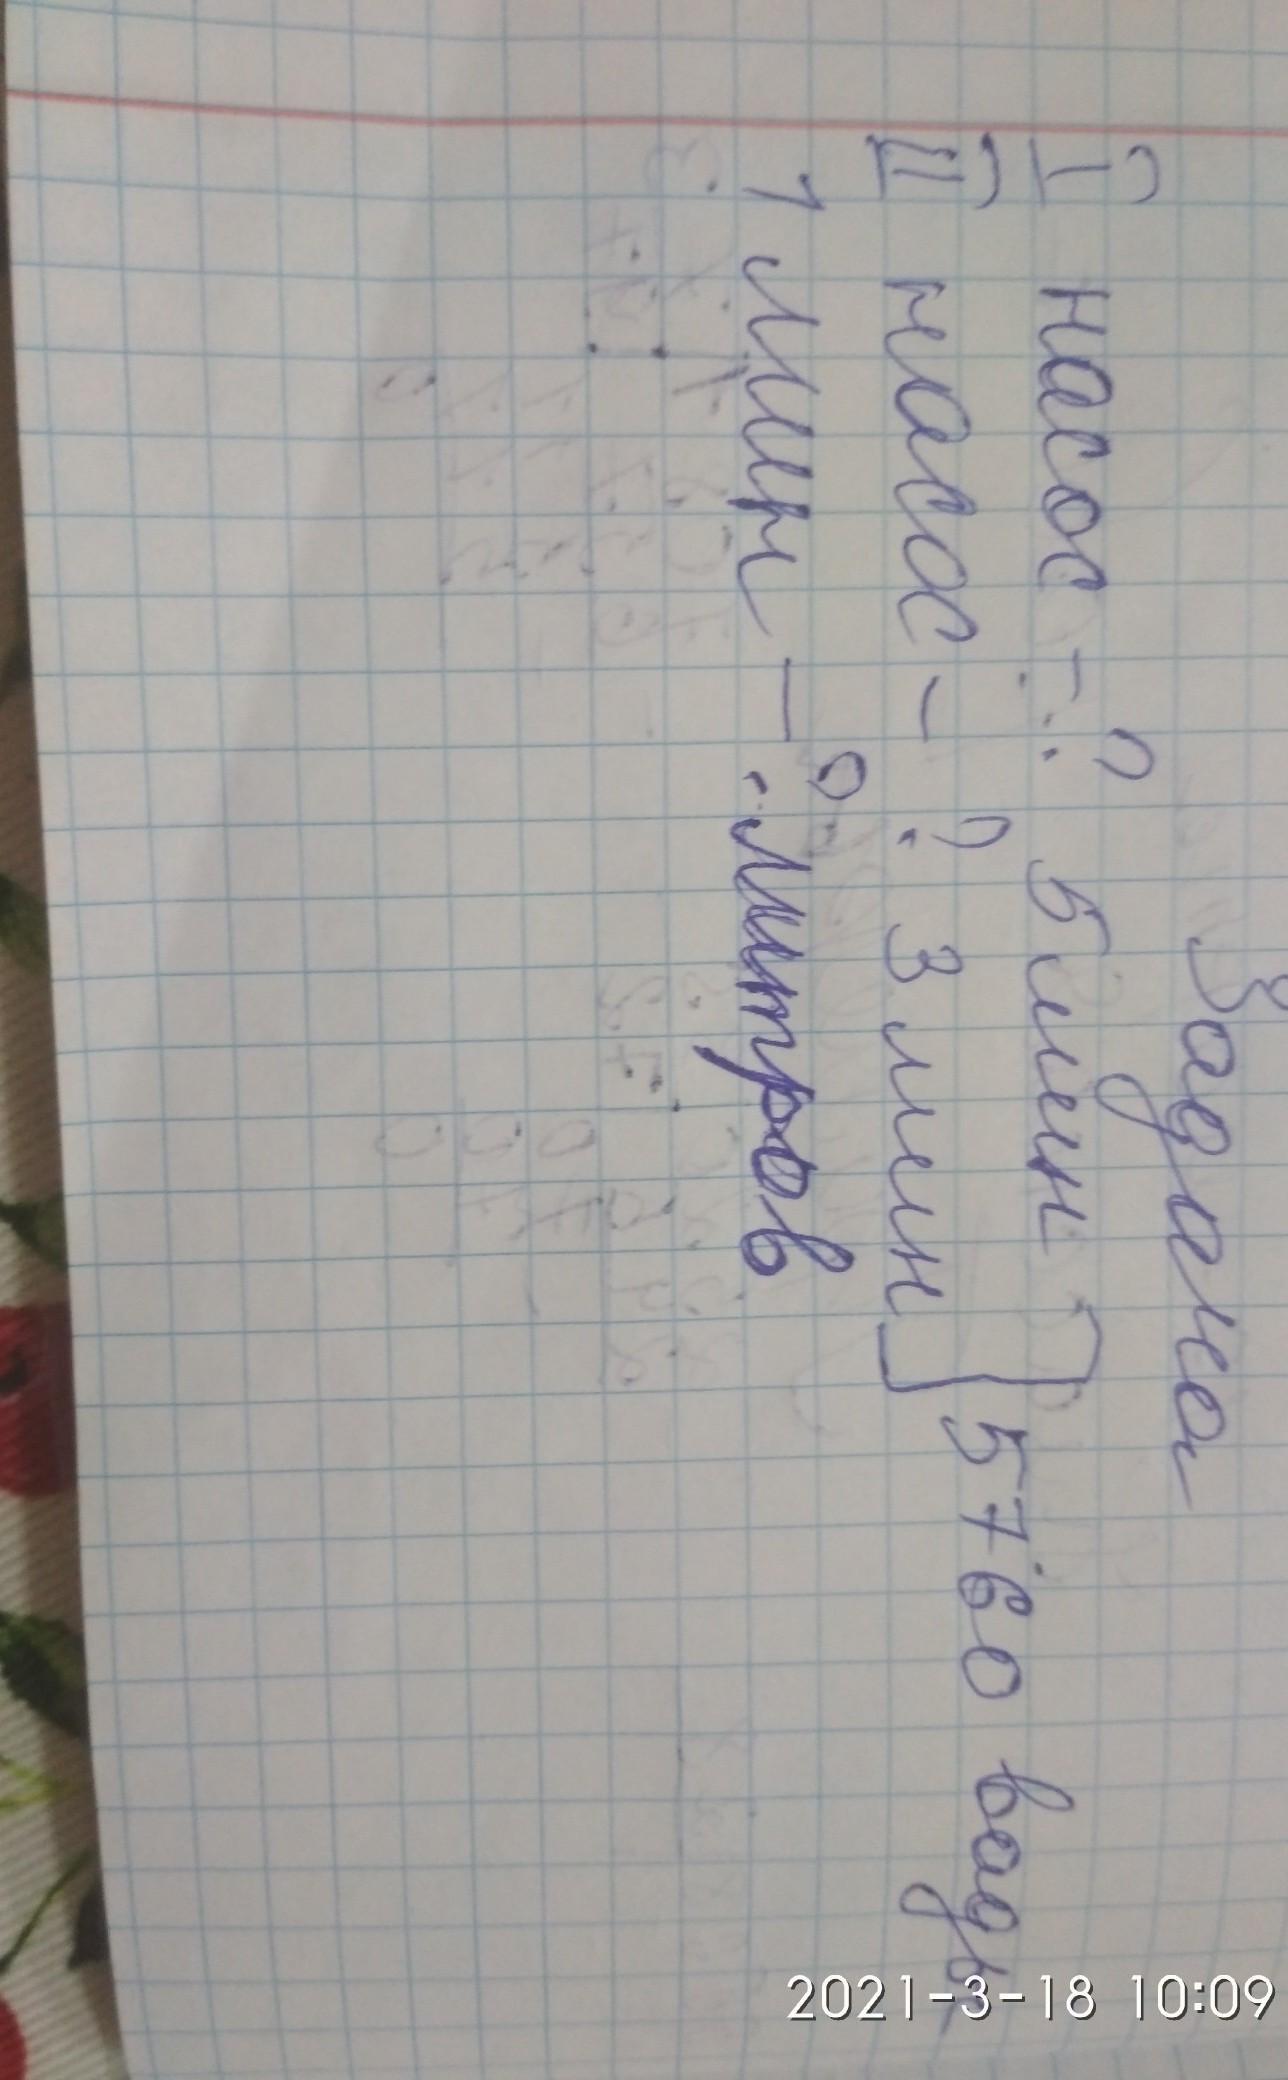 Задача
I насос - ? 5 мин
II насос - ? 3 мин } 5760 воды
1 мин - ? литров
2021-3-18 10:09